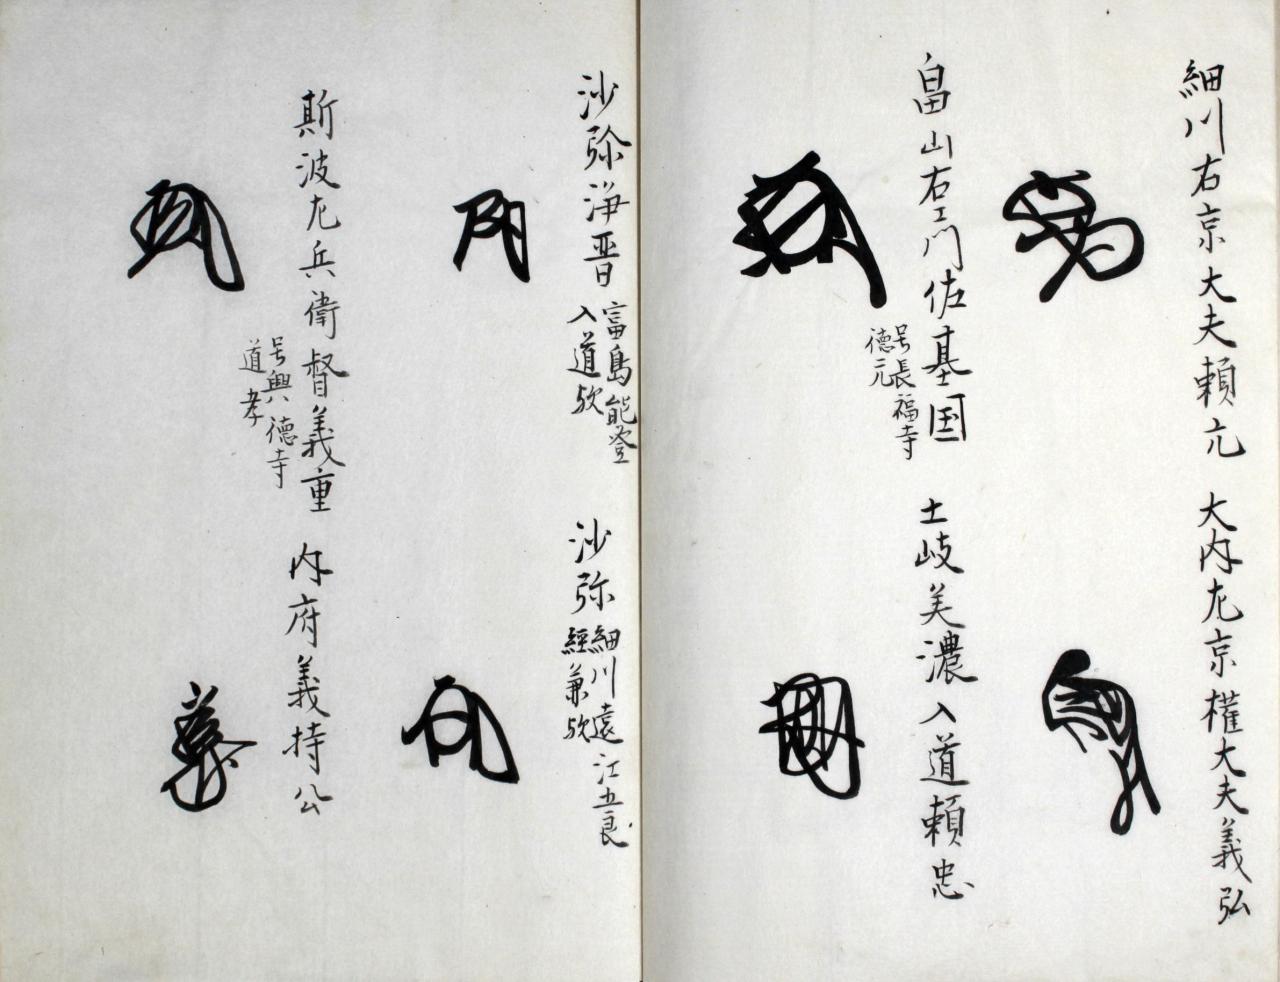 細川右京大夫頼元
大内左京權大夫義弘
畠山右エ門佐基国
号長福寺
德元
土岐美濃入道頼忠
沙弥浄晋
富島能登
入道欤
沙弥
細川遠江五良
經兼欤
斯波左兵衛督義重
号興德寺
道孝
内府義持公